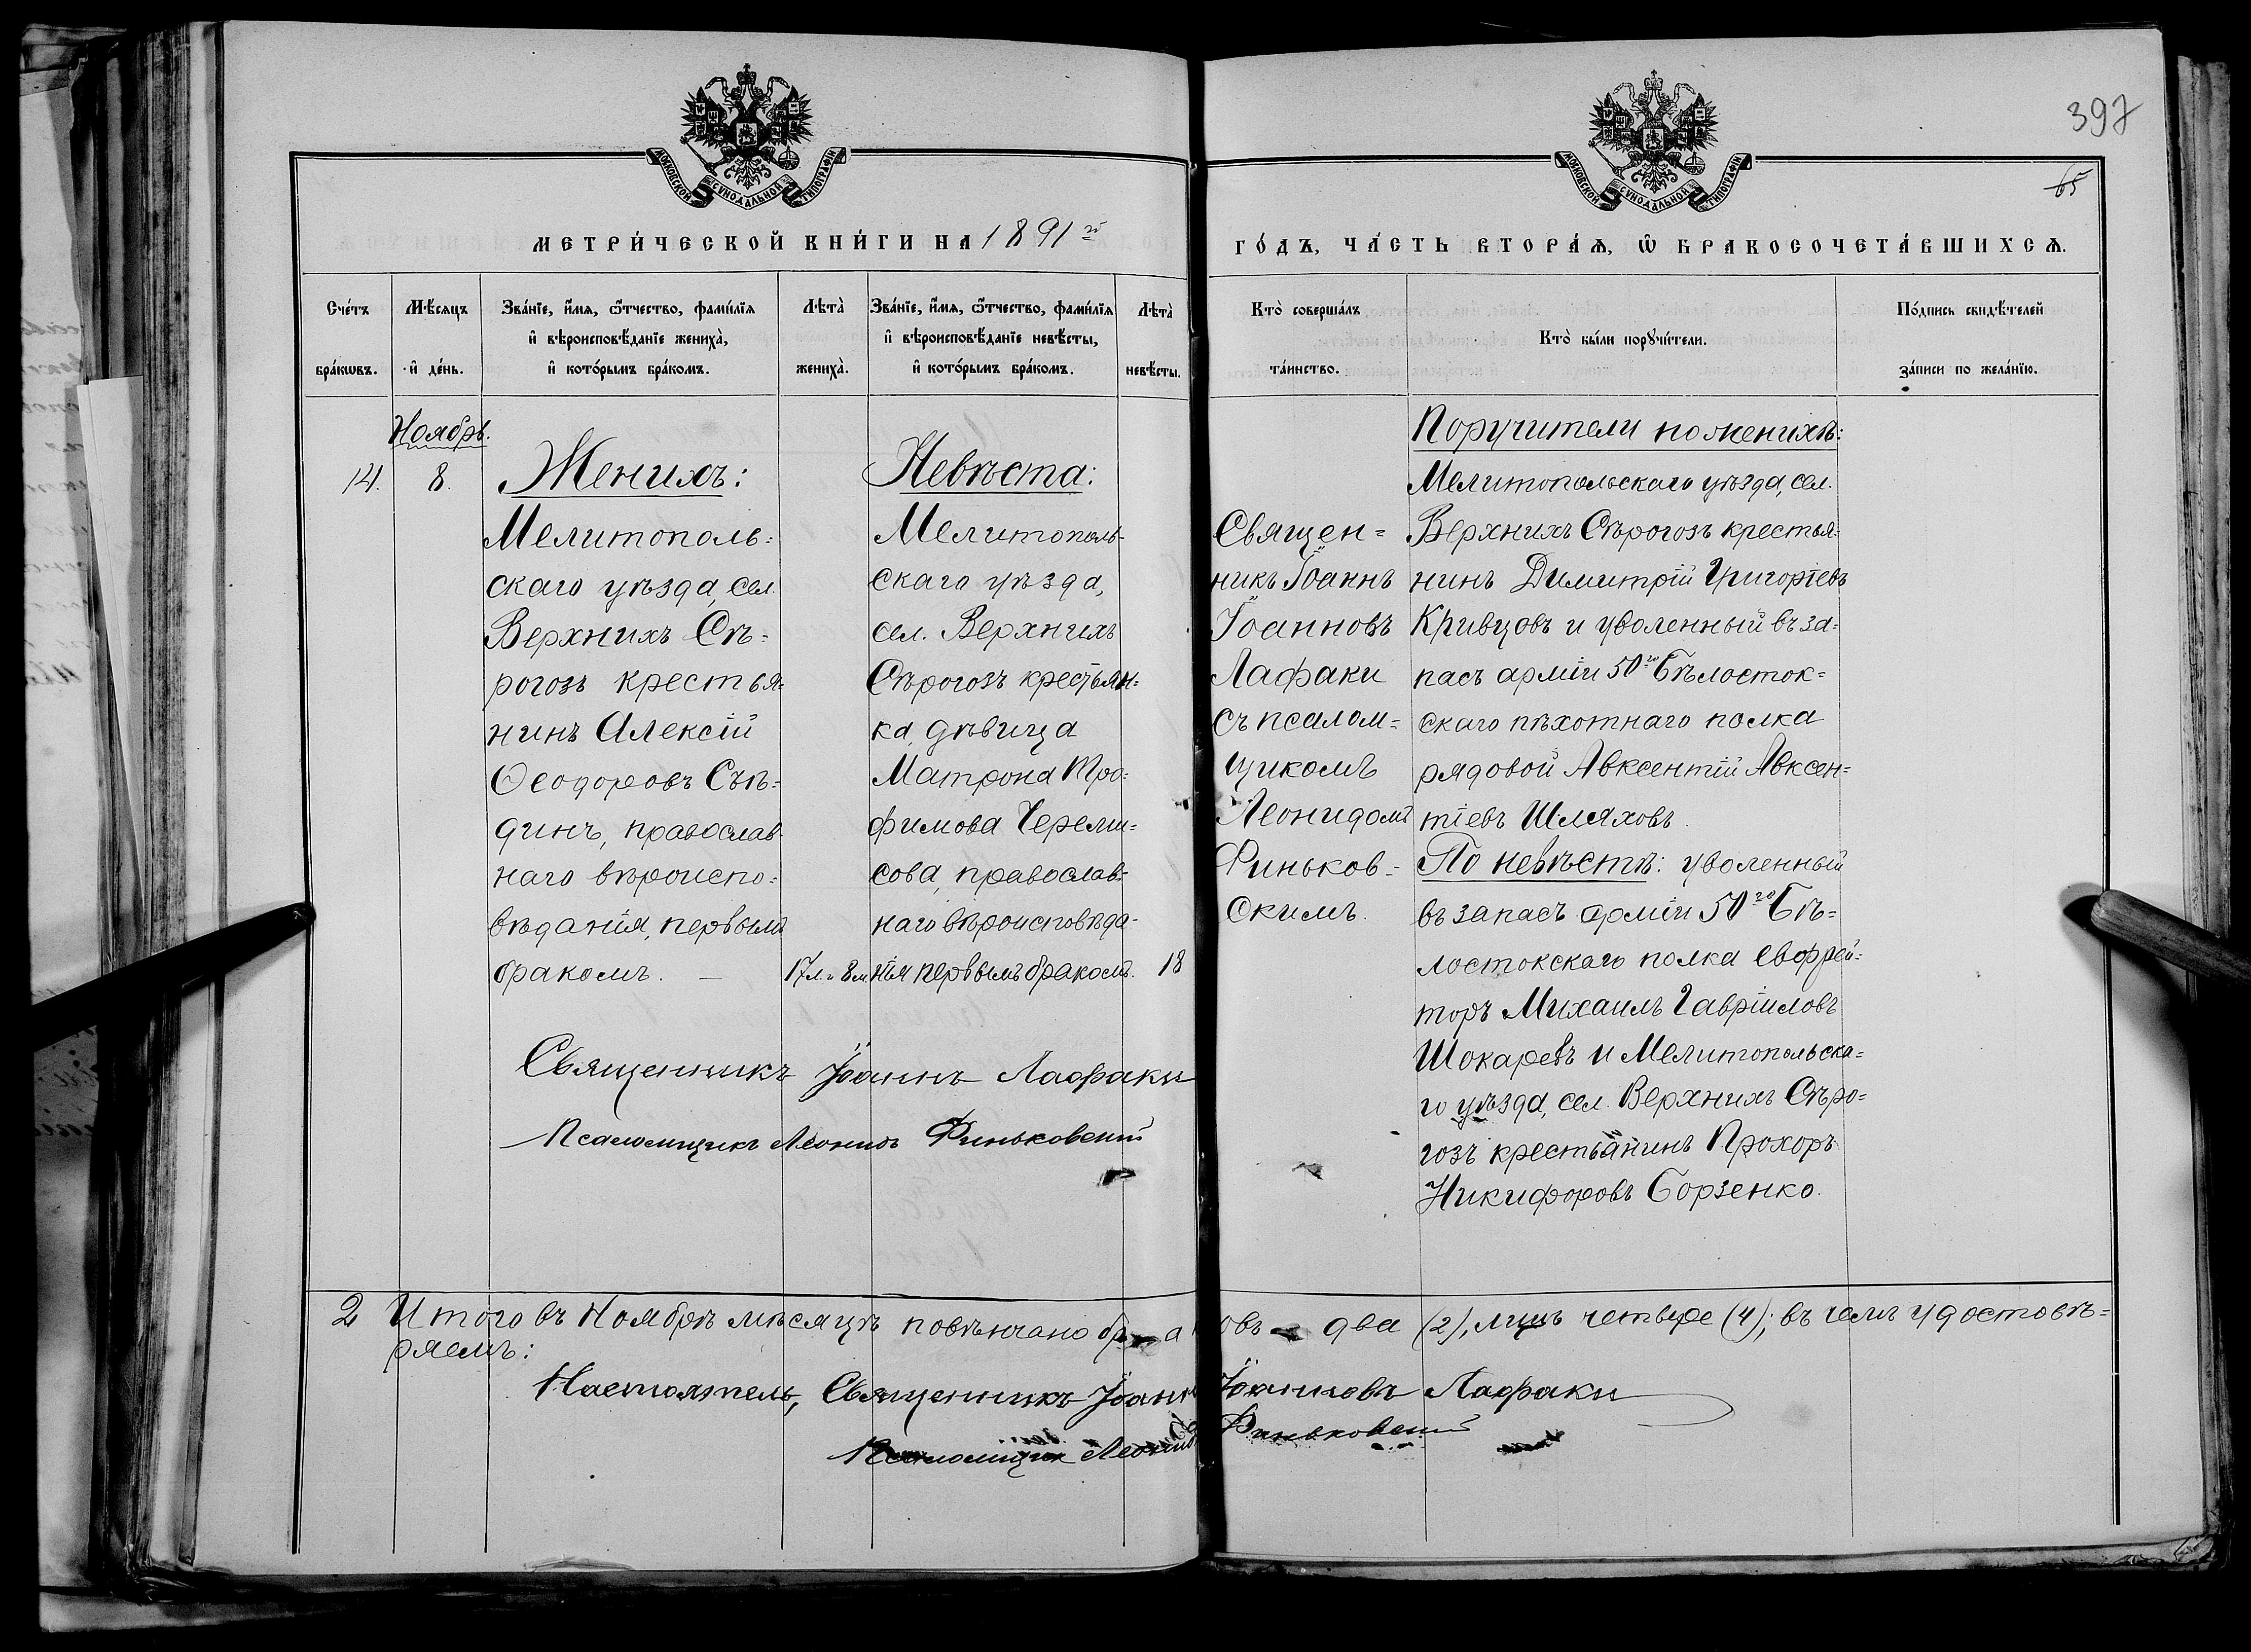 397
65
МОСКОВСКОЙ СѴНОДАЛЬНОЙ ТИПОГРАФІИ
МОСКОВСКОЙ СѴНОДАЛЬНОЙ ТИПОГРАФІИ
МЕТРИ́ЧЕСКОЙ КНИ́ГИ НА 1891й
ГО́ДЪ, ЧА́СТЬ ВТОРА́Я, Ѿ БРАКОСОЧЕТА́ВШИХСЯ.
Сче́тъ бра́кѡвъ.
Мѣ́сяцъ и де́нь.
Зва́нїе, и҆́мя, ѻ҆́тчество, фами́лїя
и҆ вѣроисповѣ́данїе жениха̀,
и҆ кото́рымъ бра́комъ.
Лѣта̀ жениха̀.
Зва́нїе, и҆́мя, ѻ҆́тчество, фами́лїя
и҆ вѣроисповѣ́данїе невѣ́сты,
и҆ кото́рымъ бра́комъ.
Лѣта̀ невѣ́сты.
Кто̀ соверша́лъ та́инство.
Кто̀ бы́ли порꙋчи́тели.
По́дпись свидѣ́телей за́писи по жела́нїю.
Ноябрь.
14.
8.
Женихъ:
Мелитополь-
скаго уѣзда, сел.
Верхнихъ Сѣ-
рогозъ крестья-
нинъ Алексій
Ѳеодоровъ Съѣ-
динъ, православ-
наго вѣроиспо-
вѣданія, первымъ
бракомъ. —
17 л. и 8 м
Невѣста:
Мелитополь-
скаго уѣзда,
сел. Верхнихъ
Сѣрогозъ крестьян-
ка, дѣвица
Матрона Тро-
фимова Череми-
сова, православ-
наго вѣроисповѣда-
нія первымъ бракомъ.
18
Священникъ Іоаннъ Лафаки
Псаломщикъ Леонидъ Финьковскій
Священ-
никъ Іоаннъ
Іоанновъ
Лафаки
съ псалом-
щикомъ
Леонидомъ
Финьков-
скимъ.
Поручители по женихѣ:
Мелитопольскаго уѣзда, сел.
Верхнихъ Сѣрогозъ крестья-
нинъ Димитрій Григоріевъ
Кривцовъ и уволенный въ за-
пасъ арміи 50го Бѣлосток-
скаго пѣхотнаго полка
рядовой Авксентій Авксен-
тіевъ Шляховъ.
По невѣстѣ: уволенный
въ запасъ арміи 50го Бѣ-
лостокскаго полка ефрей-
торъ Михаилъ Гавріиловъ
Шокаревъ и Мелитопольска-
го уѣзда, сел. Верхнихъ Сѣро-
гозъ крестьянинъ Прохоръ
Никифоровъ Борзенко.
2 Итого въ Ноябрѣ мѣсяцѣ повѣнчано бра овъ два (2), лицъ четыре (4); въ чемъ удостовѣ-
ряемъ:
Настоятель, Священникъ Іоаннъ Іоанновъ Лафаки
Псаломщикъ Леонидъ Финьковскій